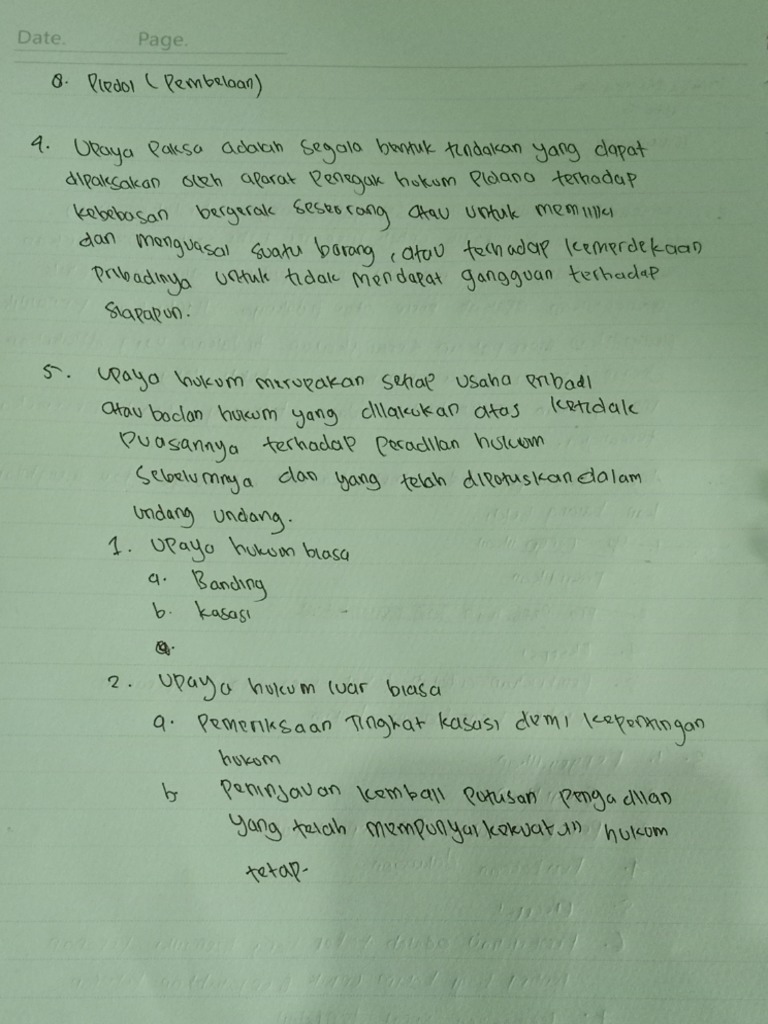 Date. Page.
8. Pledoi (Pembelaan)
4. Upaya Paksa adalah segala bentuk tindakan yang dapat
dipaksakan oleh aparat Penegak hukum Pidana terhadap
kebebasan bergerak seseorang atau untuk memiliki
dan menguasai suatu barang, atau terhadap kemerdekaan
Pribadinya untuk tidak mendapat gangguan terhadap
siapapun.
5. Upaya hukum merupakan setiap usaha pribadi
atau badan hukum yang dilakukan atas ketidak
puasannya terhadap peradilan hukum
sebelumnya dan yang telah diputuskan dalam
undang undang.
1. Upaya hukum biasa
a. Banding
b. kasasi
2. Upaya hukum luar biasa
a. Pemeriksaan Tingkat kasasi demi kepentingan
hukum
b Peninjauan kembali putusan pengadilan
yang telah mempunyai kekuatan hukum
tetap.